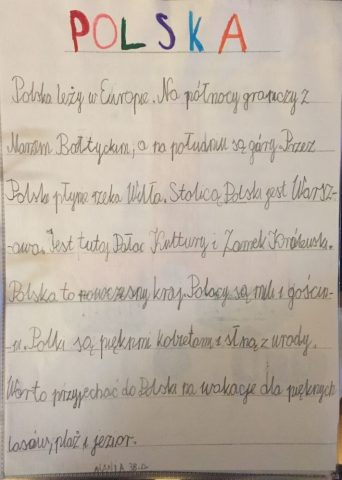 POLSKA
Polska leży w Europie. Na północy graniczy z
Morzem Bałtyckim, a na południu są góry. Przez
Polskę płynie rzeka Wisła. Stolicą Polski jest Warsz-
-awa. Jest tutaj Pałac Kultury i Zamek Królewski.
Polska to nowoczesny kraj. Polacy są mili i gościn-
-ni. Polki są pięknymi kobietami i słyną z urody.
Warto przyjechać do Polski na wakacje dla pięknych
lasów, plaż i jezior.